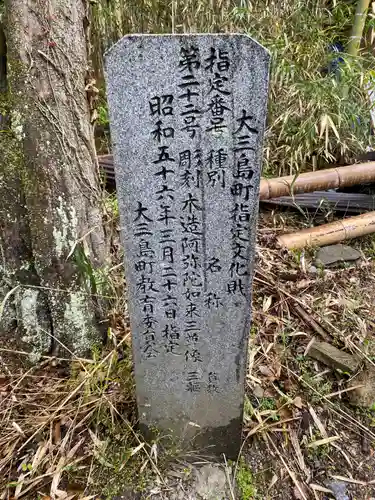 大三島町指定文化財
指定番号 種別 名称 台数
第二十二号 彫刻 木造阿弥陀如来三尊像 三軀
昭和五十六年三月二十六日指定
大三島町教育委員会